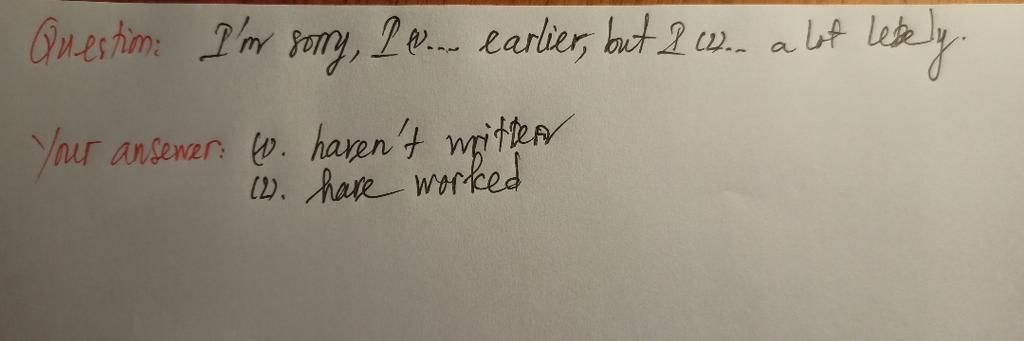 Question: I'm sorry, I (1).... earlier, but I (2).. a lot lately.
Your ansewer: (1). haven't written
(2). have worked